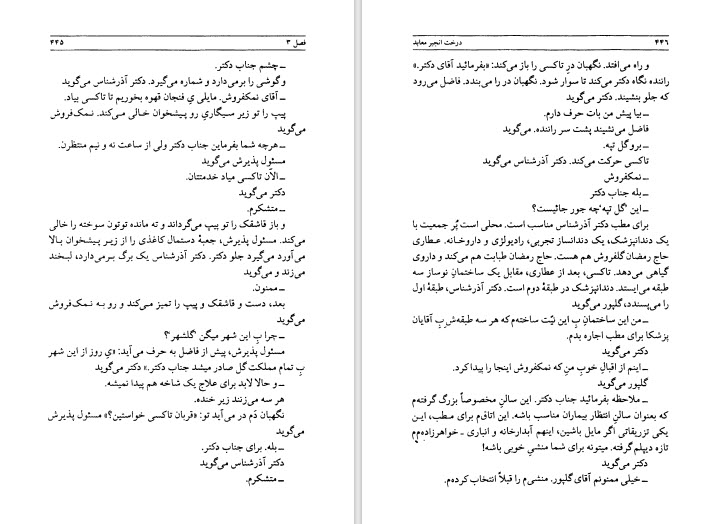 فصل ۳ ۴۴۵
ــ چشم جناب دکتر.
و گوشی را برمی‌دارد و شماره می‌گیرد. دکتر آذرشناس می‌گوید
ــ آقای نمکفروش. مایلی یِ فنجان قهوه بخوریم تا تاکسی بیاد.
پیپ را تو زیر سیگاریِ رو پیشخوان خالی می‌کند. نمک‌فروش
می‌گوید
ــ هرچه شما بفرماین جناب دکتر ولی از ساعت نه و نیم منتظرن.
مسئول پذیرش می‌گوید
ــ الآن تاکسی میاد خدمتتان.
دکتر می‌گوید
ــ متشکرم.
و باز قاشقک را تو پیپ می‌گرداند و ته مانده توتون سوخته را خالی
می‌کند. مسئول پذیرش، جعبهٔ دستمال کاغذی را از زیر پیشخوان بالا
می‌آورد می‌گیرد جلو دکتر. دکتر آذرشناس یک برگ برمی‌دارد، لبخند
می‌زند و می‌گوید
ــ ممنون.
بعد، دست و قاشقک و پیپ را تمیز می‌کند و رو به نمک‌فروش
می‌گوید
ــ چرا بِ این شهر میگن "گلشهر"؟
مسئول پذیرش، پیش از فاضل به حرف می‌آید: «یِ روز از این شهر
بِ تمام مملکت گل صادر میشد جناب دکتر.» دکتر می‌گوید
ــ و حالا لابد برای علاج یک شاخه هم پیدا نمیشه.
هر سه می‌زنند زیر خنده.
نگهبان دَم در می‌آید تو: «قربان تاکسی خواستین؟» مسئول پذیرش
می‌گوید
ــ بله. برای جناب دکتر.
دکتر آذرشناس می‌گوید
ــ متشکرم.
۴۴۶ درخت انجیر معابد
و راه می‌افتد. نگهبان درِ تاکسی را باز می‌کند: «بفرمائید آقای دکتر.»
راننده نگاه دکتر می‌کند تا سوار شود. نگهبان در را می‌بندد. فاضل می‌رود
که جلو بنشیند. دکتر می‌گوید
ــ بیا پیش من بات حرف دارم.
فاضل می‌نشیند پشت سر راننده. می‌گوید
ــ برو گل تپه.
تاکسی حرکت می‌کند. دکتر آذرشناس می‌گوید
ــ نمکفروش
ــ بله جناب دکتر
ــ این "گل تپه"چه جور جائیست؟
برای مطب دکتر آذرشناس مناسب است. محلی است پُر جمعیت با
یک دندانپزشک، یک دندانساز تجربی، رادیولژی و داروخانه. عطاری
حاج رمضان گلفروش هم هست. حاج رمضان طبابت هم می‌کند و داروی
گیاهی می‌دهد. تاکسی، بعد از عطاری، مقابل یک ساختمانِ نوساز سه
طبقه می‌ایستد. دندانپزشک در طبقهٔ دوم است. دکتر آذرشناس، طبقهٔ اول
را می‌پسندد، گلپور می‌گوید
ــ من این ساختمانِ بِ این نیّت ساخته‌م که هر سه طبقه‌شِ بِ آقایان
پزشکا برای مطب اجاره بدم.
دکتر می‌گوید
ــ اینم از اقبالِ خوبِ منِ که نمکفروش اینجا را پیدا کرد.
گلپور می‌گوید
ــ ملاحظه بفرمائید جناب دکتر. این سالنِ مخصوصاً بزرگ گرفته‌م
که بعنوان سالنِ انتظار بیماران مناسب باشه. این اتاقم برای مطب، این
یکی تزریقاتی اگر مایل باشین، اینهم آبدارخانه و انباری ـ خواهرزاده‌مم
تازه دیپلم گرفته. میتونه برای شما منشیِ خوبی باشه!
دکتر می‌گوید
ــ خیلی ممنونم آقای گلپور. منشیم را قبلاً انتخاب کرده‌م.